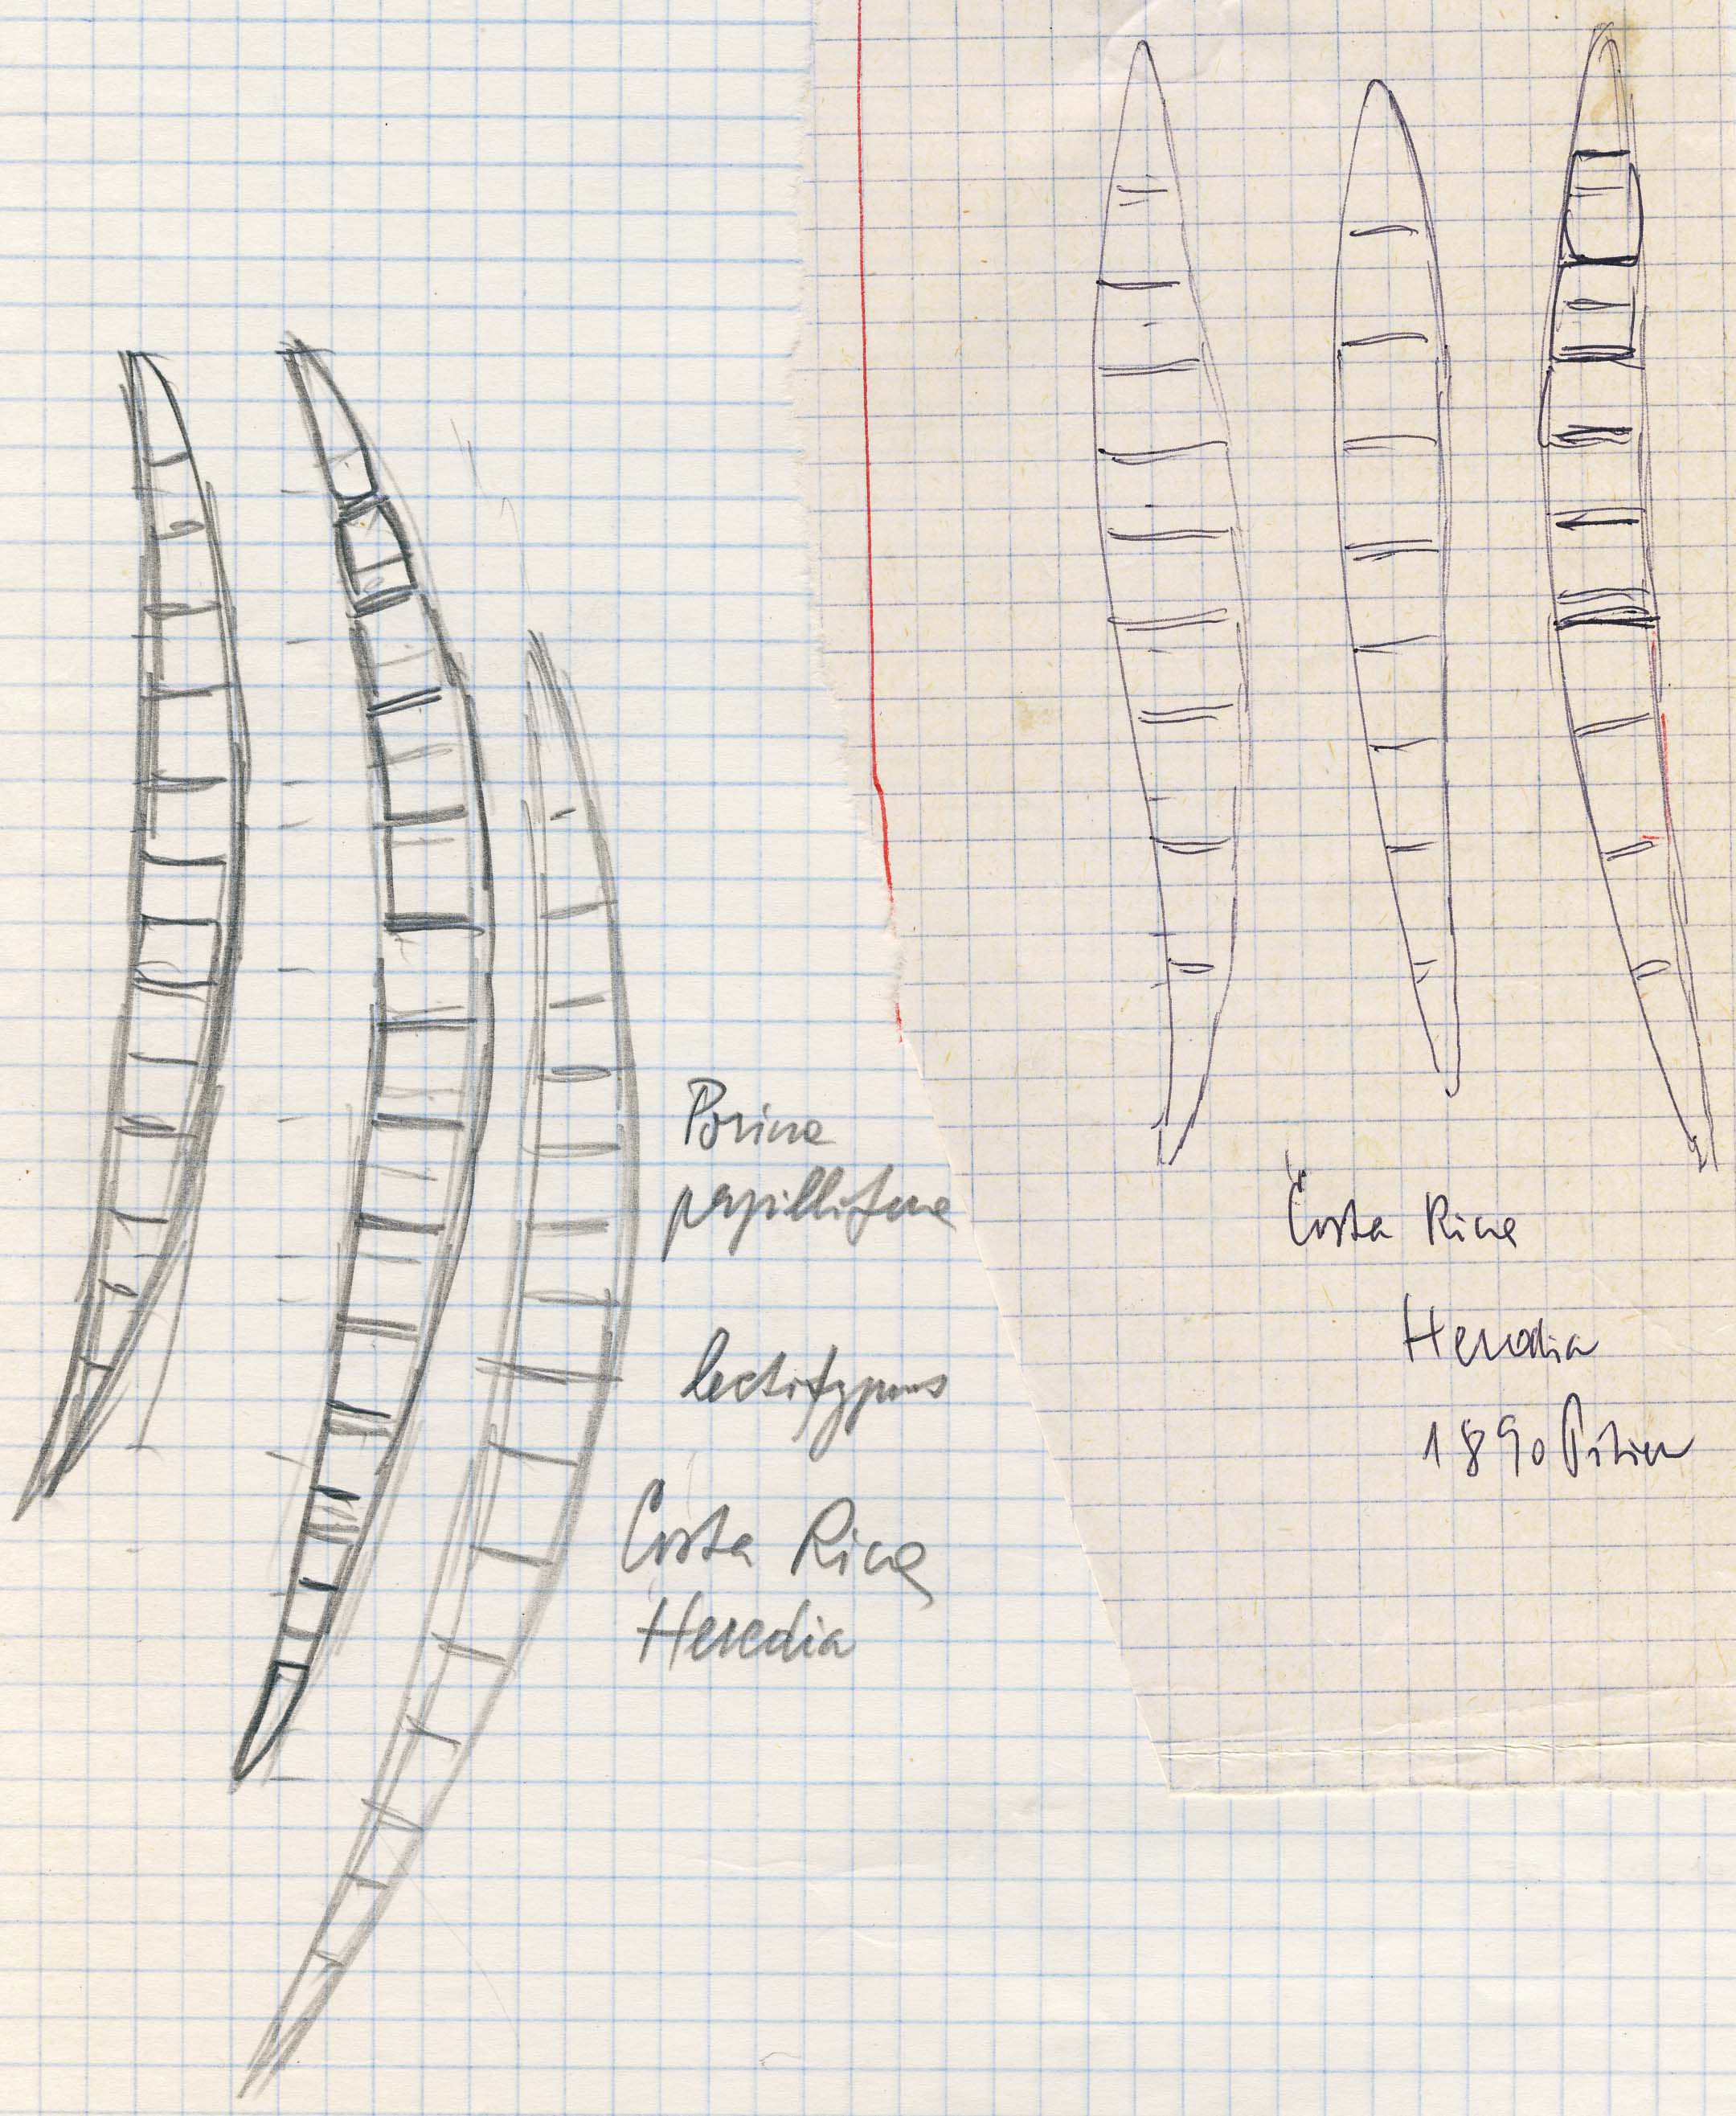 Porina
papillifera
lectotypus
Costa Rica
Heredia
Costa Rica
Heredia
1890 Pittier